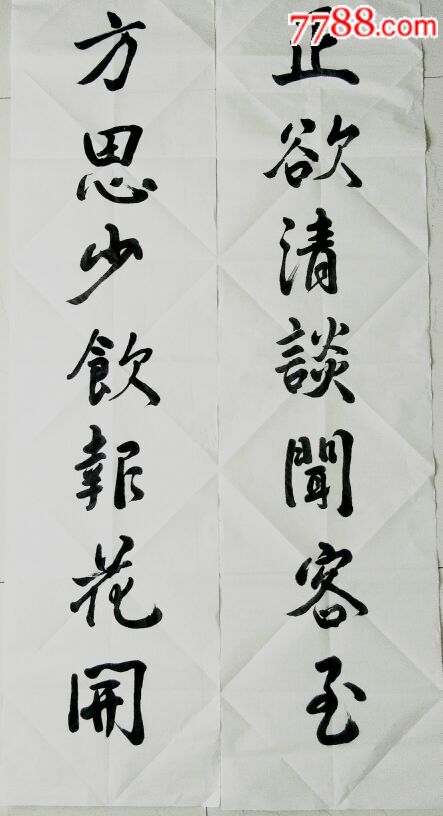 7788.com
正欲清談聞客至
方思少飲報花開